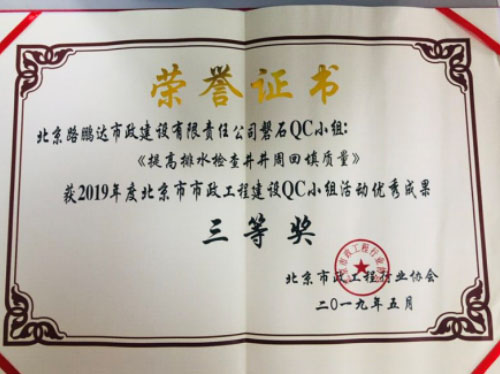 荣誉证书
北京路鹏达市政建设有限责任公司磐石QC小组：
《提高排水检查井井周回填质量》
获2019年度北京市市政工程建设QC小组活动优秀成果
三等奖
北京市政工程行业协会
二〇一九年五月